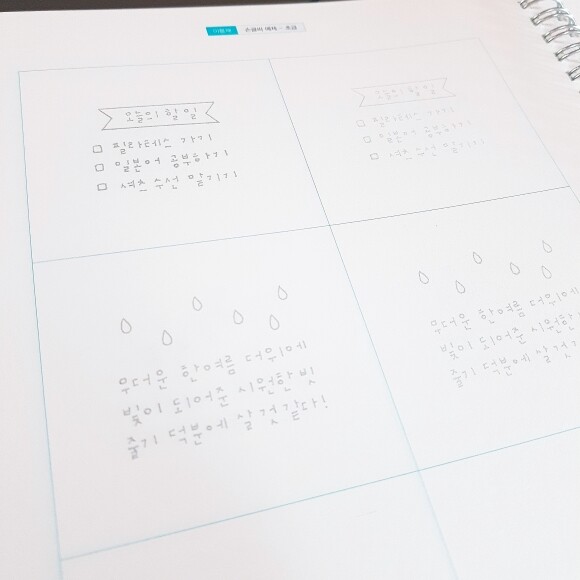 손글씨 예제 - 초급
오늘의 할 일
필라테스 가기
일본어 공부하기
셔츠 수선 맡기기
오늘의 할 일
필라테스 가기
일본어 공부하기
셔츠 수선 맡기기
무더운 한여름 더위에
빛이 되어준 시원한 빗
줄기 덕분에 살 것 같다!
무더운 한여름 더위에
빛이 되어준 시원한
줄기 덕분에 살 것